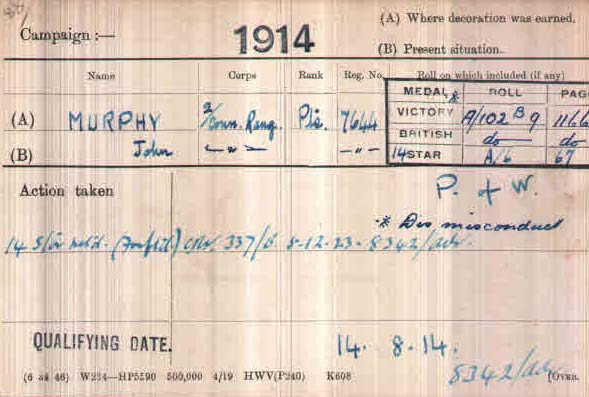 Campaign :—
1914
(A) Where decoration was earned.
(B) Present situation.
Name Corps Rank Reg. No. Roll on which included (if any)
MEDAL * ROLL PAG
(A) MURPHY 2/Conn. Rang. Pte. 7644
VICTORY A/102 B 9 1166
BRITISH do do
(B) John —"— —"—
14 STAR A/6 67
Action taken
P. & W.
* Dis misconduct
14 S/r 337/6 8-12-23 - 8342/adv.
QUALIFYING DATE. 14. 8. 14.
8342/adv
(6 34 46) W224—HP5590 500,000 4/19 HWV(P240) K608 [OVER.